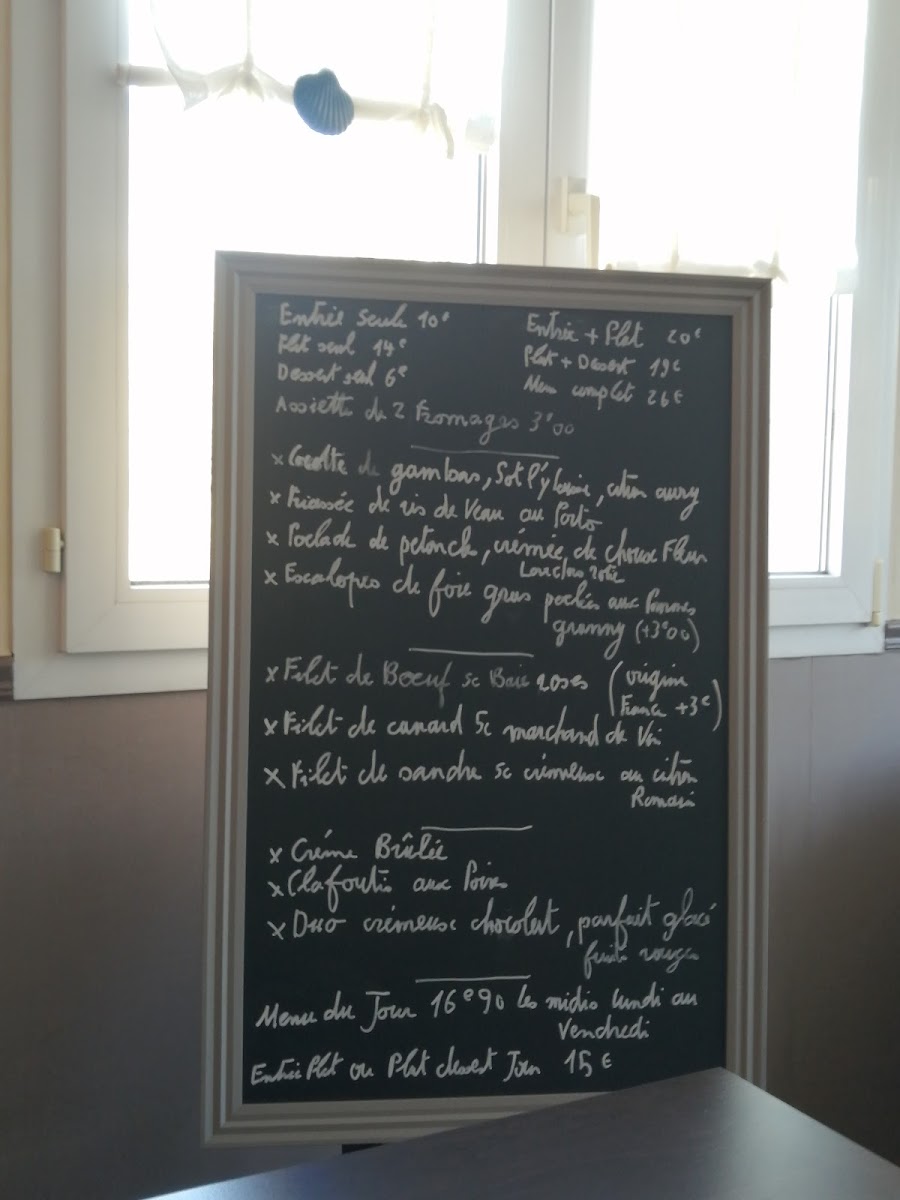 Entrée seule 10€
Plat seul 14€
Dessert seul 6€
Assiette de 2 Fromages 3€00
Entrée + Plat 20€
Plat + Dessert 19€
Menu complet 26€
x de gambas, Sot l'y laisse, citron curry
x Fricassée de ris de Veau au Porto
x Poelade de petoncle, crémée de choux Fleur
x Escalopes de foie gras poelées aux Pommes
granny (+3€00)
x Filet de Boeuf Sc Baie roses (origine
France +3€)
x Filet de canard Sc marchand de Vin
x Filet de sandre Sc crémeuse au citron
Romarin
x Créme Brûlée
x Clafoutis aux Poires
x Duo crémeuse chocolat, parfait glacé
fruits rouges
Menu du Jour 16€90 les midis lundi au
Vendredi
Entrée Plat ou Plat dessert Jour 15€